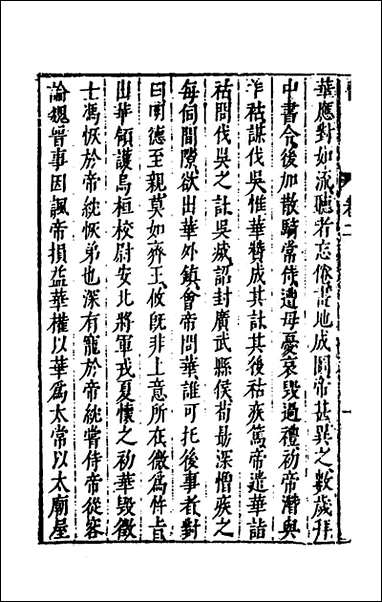 卷二
華應對如流聽者忘倦畫地成圖帝甚異之數歲拜
中書令後加散騎常侍遭母憂哀毀過禮初帝潛與
羊祜謀伐吳惟華贊成其計其後祜疾篤帝遣華詣
祜問伐吳之計吳滅詔封廣武縣侯荀勗深憎疾之
每伺間隙欲出華外鎮會帝問華誰可托後事者對
曰明德至親莫如齊王攸既非上意所在微爲忤旨
出華領護烏桓校尉安北將軍戎夏懷之初華毀徵
士馮恢於帝紞恢弟也深有寵於帝紞嘗侍帝從容
論魏晉事因諷帝損益華權以華爲太常以太廟屋